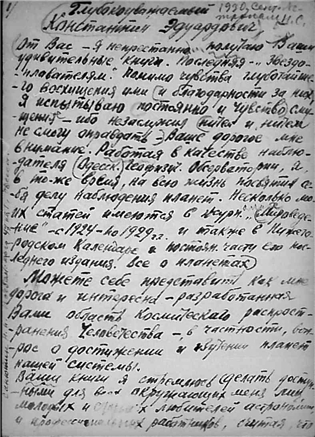 Глубокоуважаемый
Константин Эдуардович
От Вас – я непрестанно получаю Ваши
удивительные книги. Последняя – „Звездо-
плавателям". Помимо чувства глубочайше-
го восхищения ими и благодарности за них,
я испытываю постоянно и чувство сму-
щения – ибо незаслужил ничем и ничем
не смогу оправдать Ваше дорогое мне
внимание. Работая в качестве наблю-
дателя Одесск. Обсерватории, я
в то же время, на всю жизнь посвятил се-
бя делу наблюдения планет. Несколько мо-
их статей имеются в журн. „Мироведе-
ние" – с 1924 – по 1929 и также в Нижего-
родском Календаре в постоян. части его пос-
леднего издания. Все о планетах
Можете себе представить как мне
дорога и интересна – разработанная
Вами область Космического распрост-
ранения Человечества –, в частности, воп-
рос о достижении и изучении планет
нашей системы.
Ваши книги я стремлюсь сделать доступ-
ными для всех окружающих меня лиц,
молодых и любителей астрономии
и профессиональных работников, считая, что